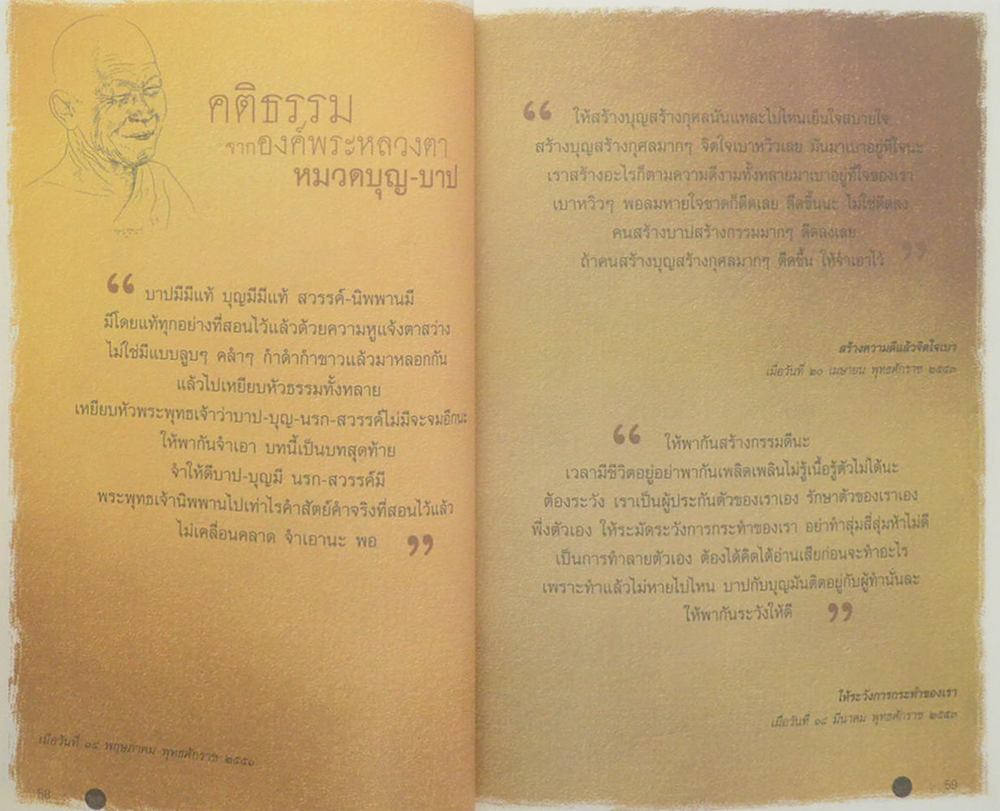 คติธรรม
จากองค์พระหลวงตา
หมวดบุญ-บาป
“ บาปมีมีแท้ บุญมีมีแท้ สวรรค์-นิพพานมี
มีโดยแท้ทุกอย่างที่สอนไว้แล้วด้วยความหูแจ้งตาสว่าง
ไม่ใช่มีแบบลูบๆ คลำๆ กำดำกำขาวแล้วมาหลอกกัน
แล้วไปเหยียบหัวธรรมทั้งหลาย
เหยียบหัวพระพุทธเจ้าว่าบาป-บุญ-นรก-สวรรค์ไม่มีจะจมอีกนะ
ให้พากันจำเอา บทนี้เป็นบทสุดท้าย
จำให้ดีบาป-บุญมี นรก-สวรรค์มี
พระพุทธเจ้านิพพานไปเท่าไรคำสัตย์คำจริงที่สอนไว้แล้ว
ไม่เคลื่อนคลาด จำเอานะ พอ ”
เมื่อวันที่ ๑๔ พฤษภาคม พุทธศักราช ๒๕๕๑
58
“ ให้สร้างบุญสร้างกุศลนั่นแหละไปไหนเย็นใจสบายใจ
สร้างบุญสร้างกุศลมากๆ จิตใจเบาหวิวเลย มันมาเบาอยู่ที่ใจนะ
เราสร้างอะไรก็ตามความดีงามทั้งหลายมาเบาอยู่ที่ใจของเรา
เบาหวิวๆ พอลมหายใจขาดก็ดีดเลย ดีดขึ้นนะ ไม่ใช่ดีดลง
คนสร้างบาปสร้างกรรมมากๆ ดีดลงเลย
ถ้าคนสร้างบุญสร้างกุศลมากๆ ดีดขึ้น ให้จำเอาไว้ ”
สร้างความดีแล้วจิตใจเบา
เมื่อวันที่ ๒๐ เมษายน พุทธศักราช ๒๕๕๓
“ ให้พากันสร้างกรรมดีนะ
เวลามีชีวิตอยู่อย่าพากันเพลิดเพลินไม่รู้เนื้อรู้ตัวไม่ได้นะ
ต้องระวัง เราเป็นผู้ประกันตัวของเราเอง รักษาตัวของเราเอง
พึ่งตัวเอง ให้ระมัดระวังการกระทำของเรา อย่าทำสุ่มสี่สุ่มห้าไม่ดี
เป็นการทำลายตัวเอง ต้องได้คิดได้อ่านเสียก่อนจะทำอะไร
เพราะทำแล้วไม่หายไปไหน บาปกับบุญมันติดอยู่กับผู้ทำนั่นละ
ให้พากันระวังให้ดี ”
ให้ระวังการกระทำของเรา
เมื่อวันที่ ๑๘ มีนาคม พุทธศักราช ๒๕๕๓
59